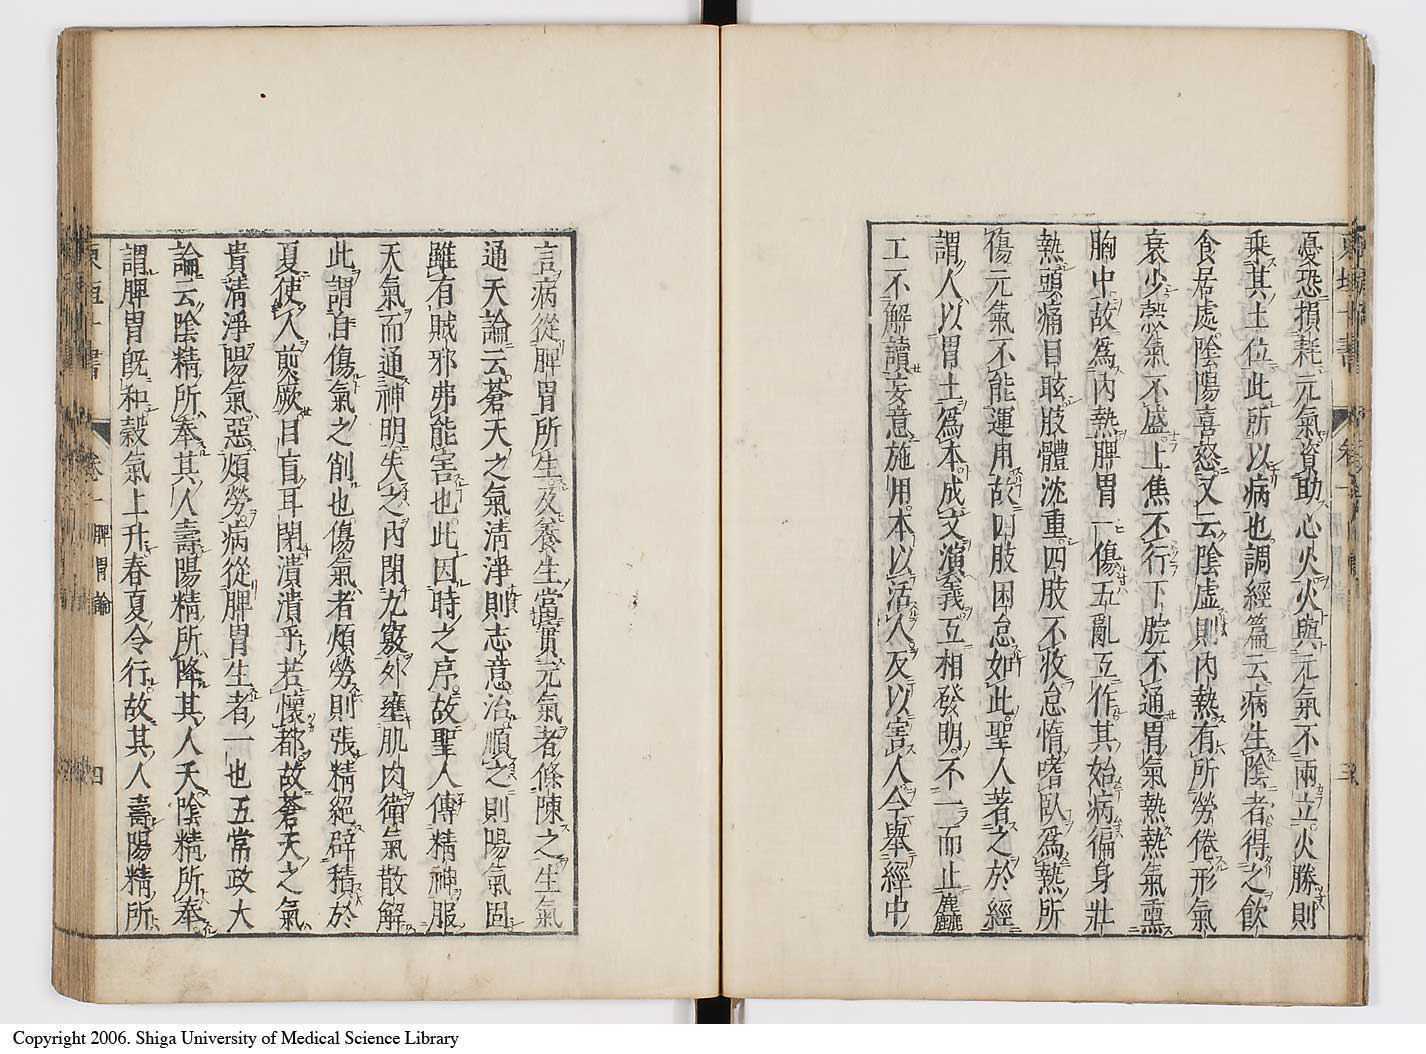 憂恐損耗元氣資助心火火與元氣不兩立火勝則
乘其土位此所以病也調經篇云病生陰者得之飲
食居處陰陽喜怒又云陰虛則內熱有所勞倦形氣
衰少穀氣不盛上焦不行下脘不通胃氣熱熱氣熏
胸中故爲內熱脾胃一傷五亂互作其始病徧身壯
熱頭痛目眩肢體沈重四肢不收怠惰嗜臥爲熱所
傷元氣不能運用故四肢困怠如此聖人著之於經
謂人以胃土爲本成文演義互相發明不一而止麤
工不解讀妄意施用本以活人反以害人今舉經中
言病從脾胃所生及養生當實元氣者條陳之生氣
通天論云蒼天之氣清淨則志意治順之則陽氣固
雖有賊邪弗能害也此因時之序故聖人傳精神服
天氣而通神明失之內閉九竅外壅肌肉衛氣散解
此謂自傷氣之削也傷氣者煩勞則張精絕辟積於
夏使人煎厥目盲耳閉潰潰乎若懷都故蒼天之氣
貴清淨陽氣惡煩勞病從脾胃生者一也五常政大
論云陰精所奉其人壽陽精所降其人夭陰精所奉
謂脾胃既和穀氣上升春夏令行故其人壽陽精所
東垣十書 卷一 脾胃論 四
Copyright 2006. Shiga University of Medical Science Library